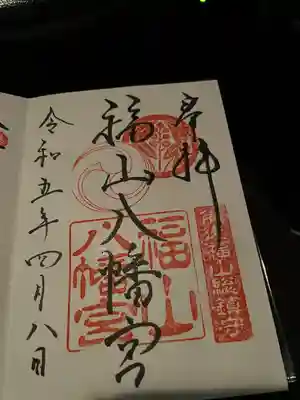 奉拝
福山八幡宮
令和五年四月八日
福山
八幡宮
福山総鎮守